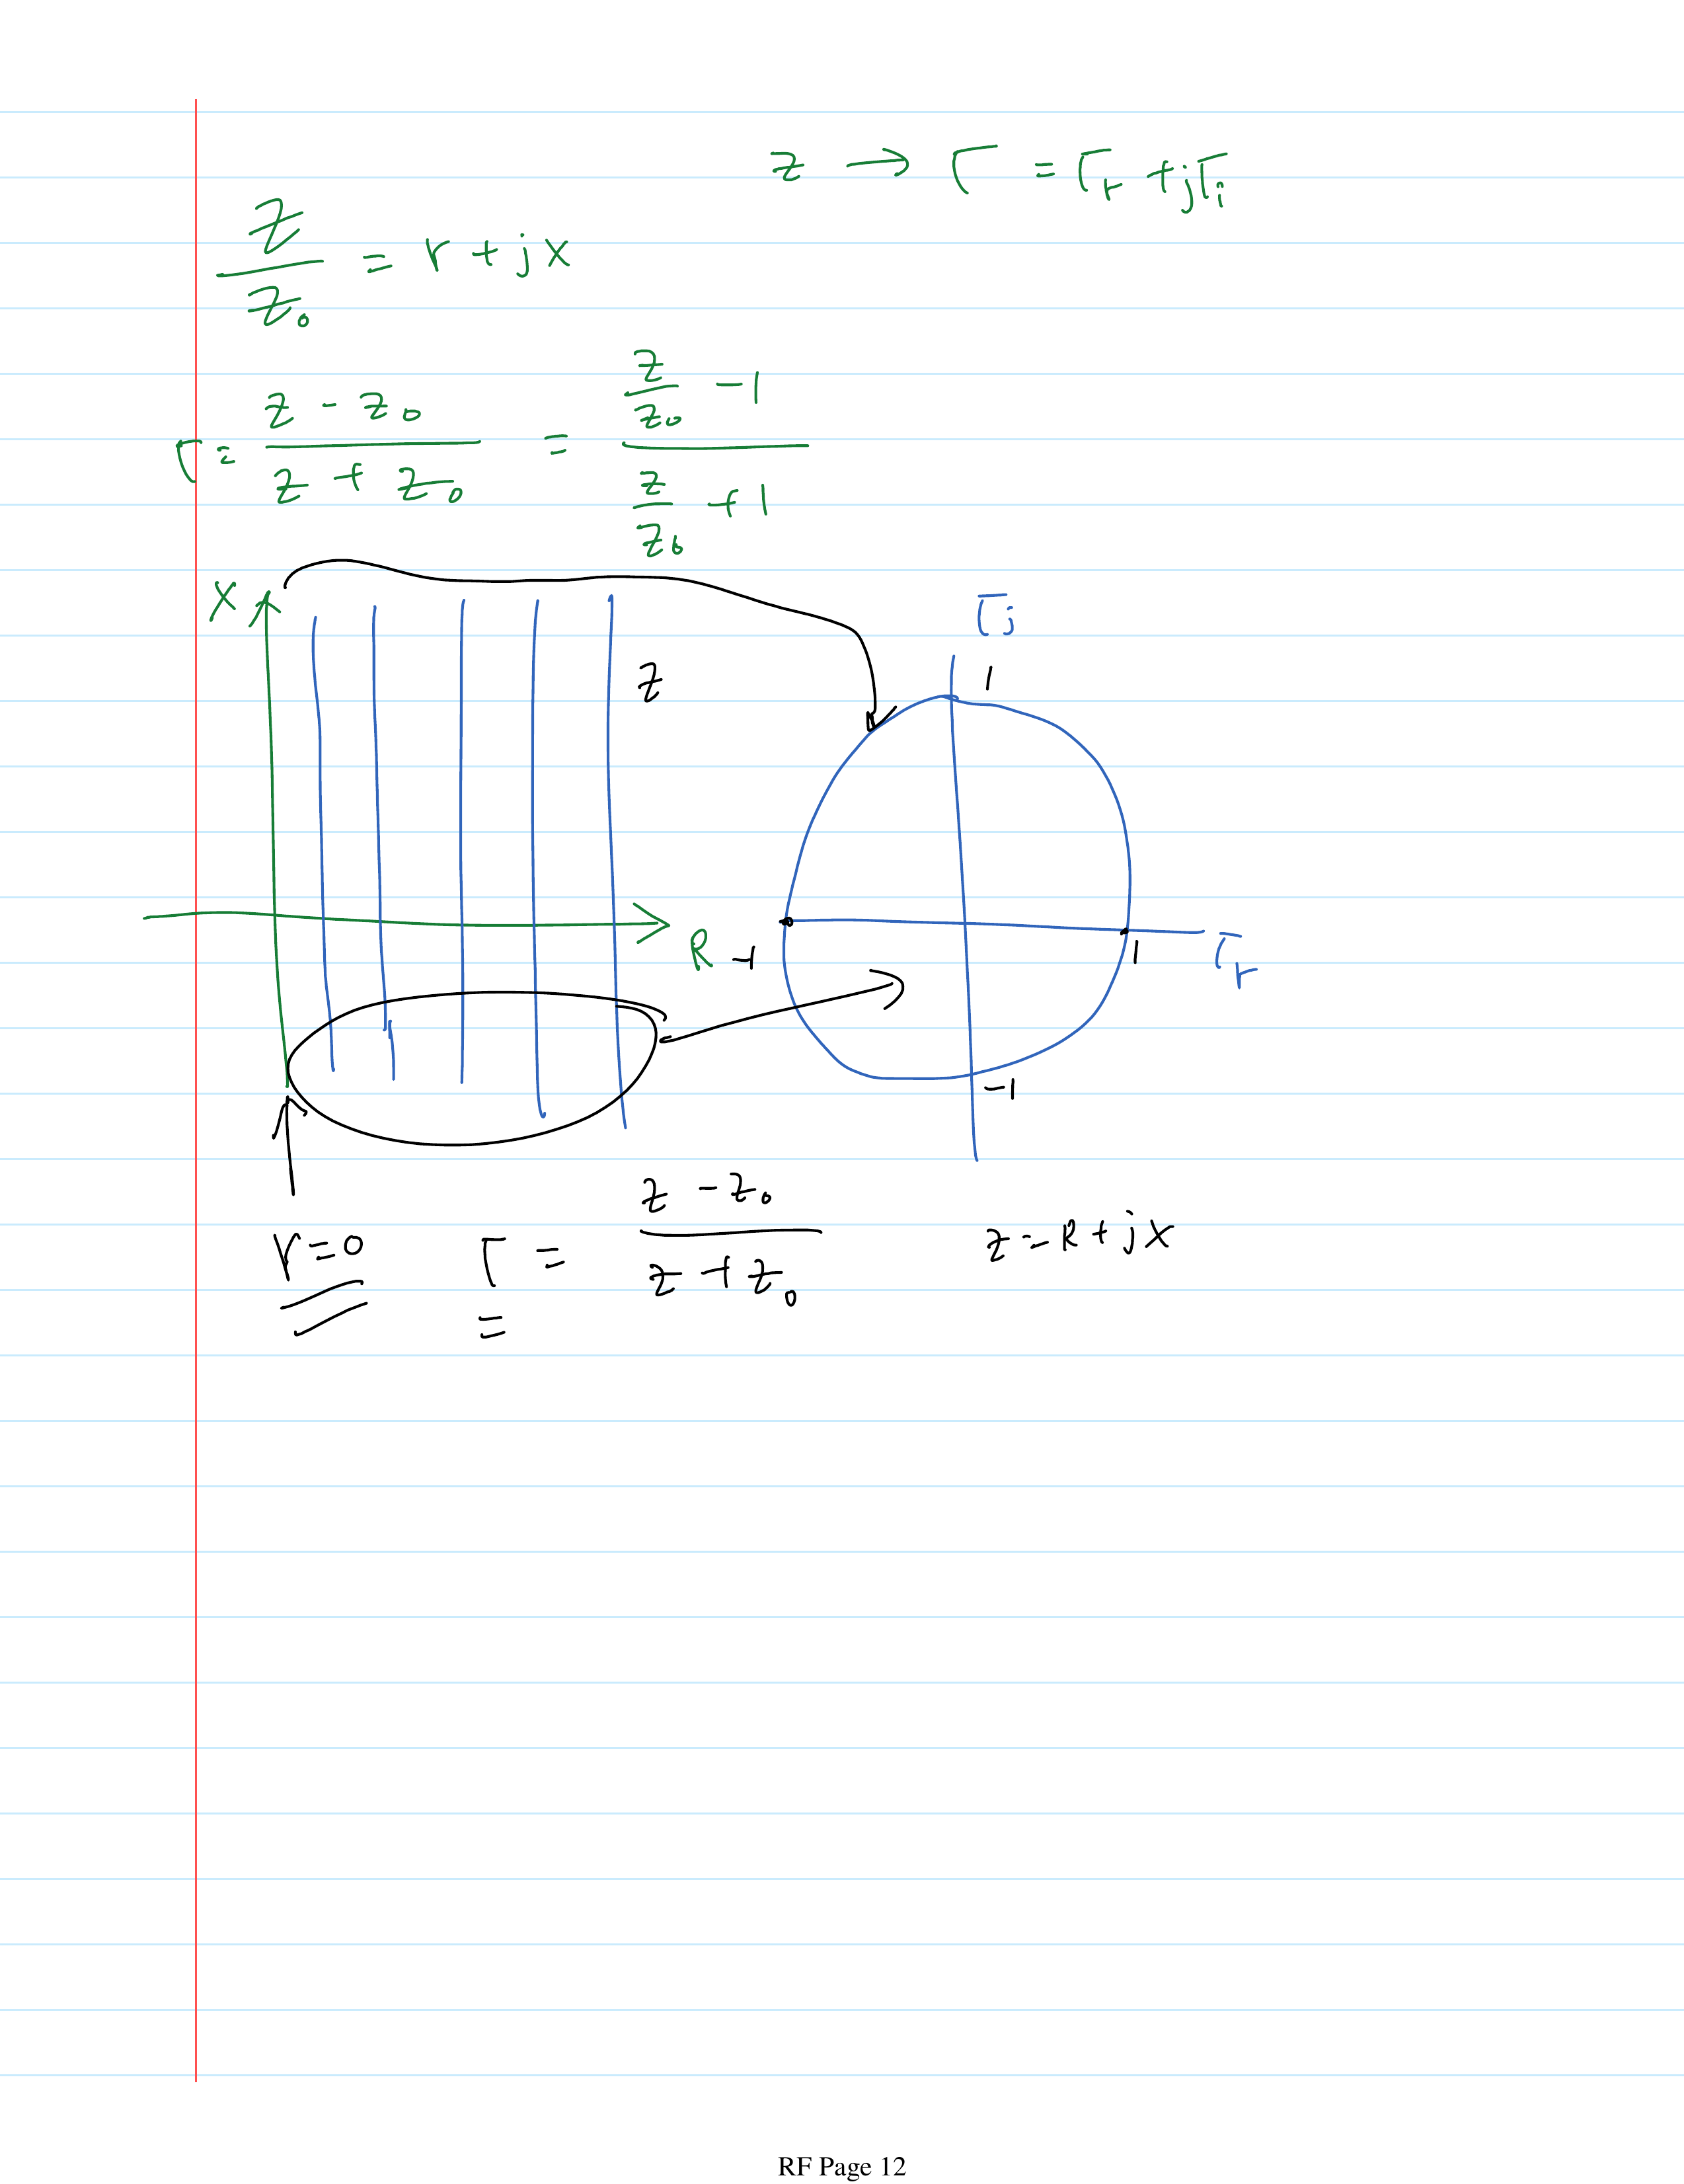 z → Γ = Γr + jΓi
z/z0 = r + jx
Γ = (z - z0)/(z + z0) = (z/z0 - 1)/(z/z0 + 1)
X
Γj
1
z
R
-1
1
Γr
-1
r=0
Γ = (z - z0)/(z + z0)
z = R + jX
RF Page 12